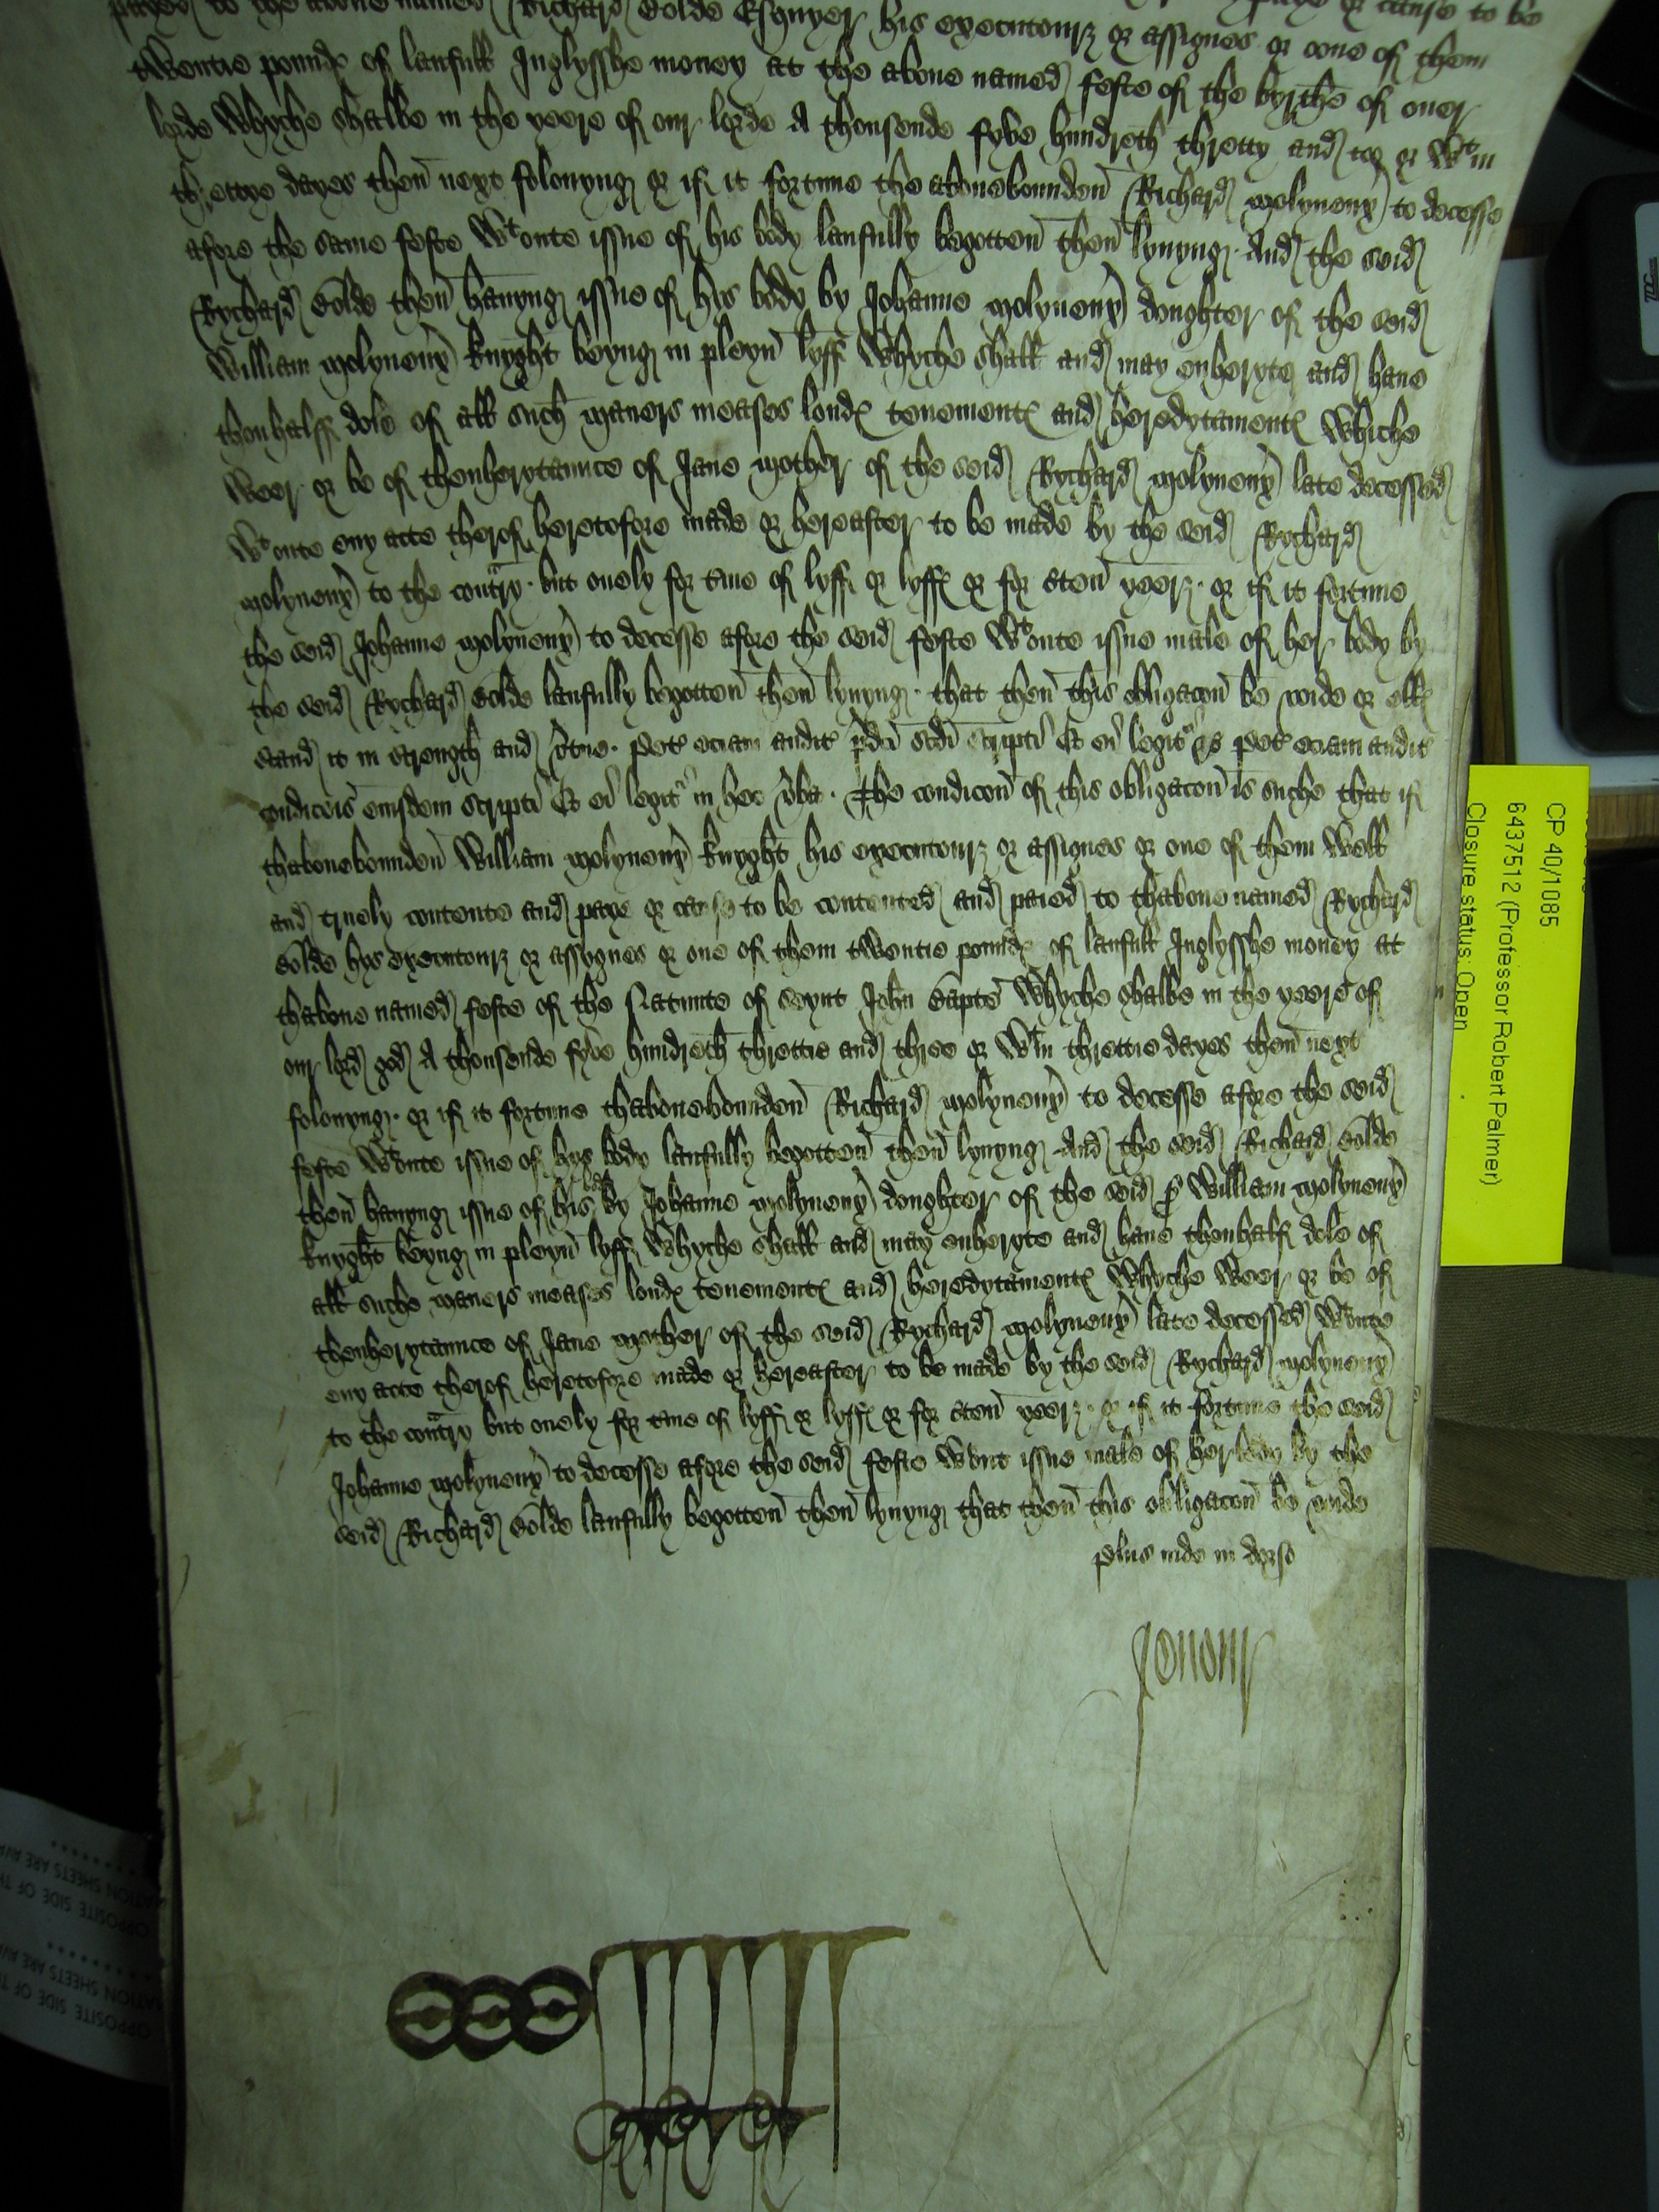 payed to the above named Richard Bolde Esquyer his executourz or assignes or oone of them
twentie pound of laufull Inglysshe money at the above named feste of the byrthe of ouer
lorde Whyche shalbe in the yeere of our lorde A thousende fyve hundreth thretty and too or wt in
threttye dayes then next foloyng or if it fortune the abovebounden Richard Molyneux to decesse
afore the same feste wt oute issue of his body laufully begotten then lyvyng And the seid
Rychard Bolde then havyng issue of hys body by Johanne Molyneux doughter of the seid
William Molyneux knyght beyng in pleyn lyff Whyche shall and may enheryte and have
thonhalff dole of all such maners meases lond tenement and heredytament Whiche
weer or be of thenherytaunce of Jane mother of the seid Rychard Molyneux late decessed
Wt oute eny acte therof heretofore made or hereafter to be made by the seid Rychard
Molyneux to the contry but onely for tme of lyff or lyff or for cten yeerz or if it fortune
the seid Johanne Molyneux to decesse afore the seid feste wt oute issue male of her body by
the seid Rychard Bolde laufully begotten then lyvyng that then this obligacon be voide or ell
stand it in strength and vtue Pet eciam audit pdci scdi scripti Et ei legit r is Pet eciam audit
condicois eiusdem scripti Et ei legit r in hec vba The condicon of this obligacon is suche that if
thabovebounden William Molyneux knyght his executourz or assignes or one of them well
and truely contente and paye or cause to be contented and paied to thabove named Rychard
Bolde hys executourz or assygnes or one of them twentie pound of laufull Inglysshe money at
thabove named feste of the Natiuite of seynt John Bapte Whyche shalbe in the yeere of
our lord god A thousende fyve hundreth threttie and three or wt in threttie dayes then next
foloyng or if it fortune thabovebounden Richard Molyneux to decesse afore the seid
feste wt oute issue of hys body laufully begotten then lyvyng And the seid Richard Bolde
then havyng issue of his body by Johanne Molyneux doughter of the seid William Molyneux
knyght beyng in pleyn lyff Whyche shall and may enheryte and have thonhalf dole of
all suche maners meases lond tenement and heredytament Whyche weer or be of
thenherytaunce of Jane mother of the seid Rychard Molyneux late decessed wt oute
eny acte therof heretofore made or hereafter to be made by the seid Rychard Molyneux
to the contry but onely for tme of lyff or lyff or for cten yeerz or if it fortune the seid
Johanne Molyneux to decesse afore the seid feste wt out issue male of her body by the
seid Richard Bolde laufully begotten then lyvyng that then this obligacon be voide
plus inde in dorso
CP 40/1085
6437512 (Professor Robert Palmer)
Closure status: Open
OPPOSITE SIDE OF
SHEETS ARE
OPPOSITE SIDE OF
SHEETS ARE